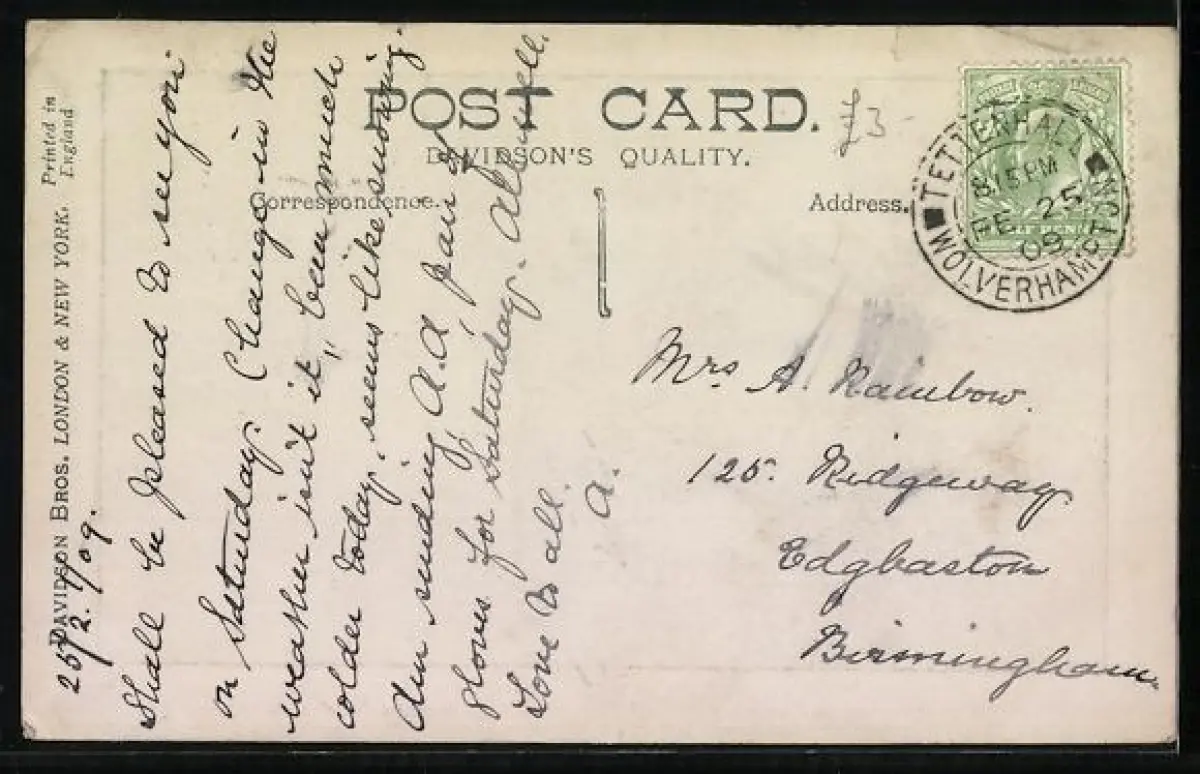 POST CARD.
£3-
DAVIDSON'S QUALITY.
Correspondence.
Address.
TETTENHALL
WOLVERHAMPTON
8.15PM
FE 25
09
Printed in
England
DAVIDSON BROS. LONDON & NEW YORK.
25/2/09.
Shall be pleased to see you
on Saturday. Change in the
weather isn't it, been much
colder today, seems like snowing.
Am sending A.A pair of
gloves for Saturday. All well.
Love to all.
A.
Mrs A. Rainbow.
125. Ridgeway
Edgbaston
Birmingham.